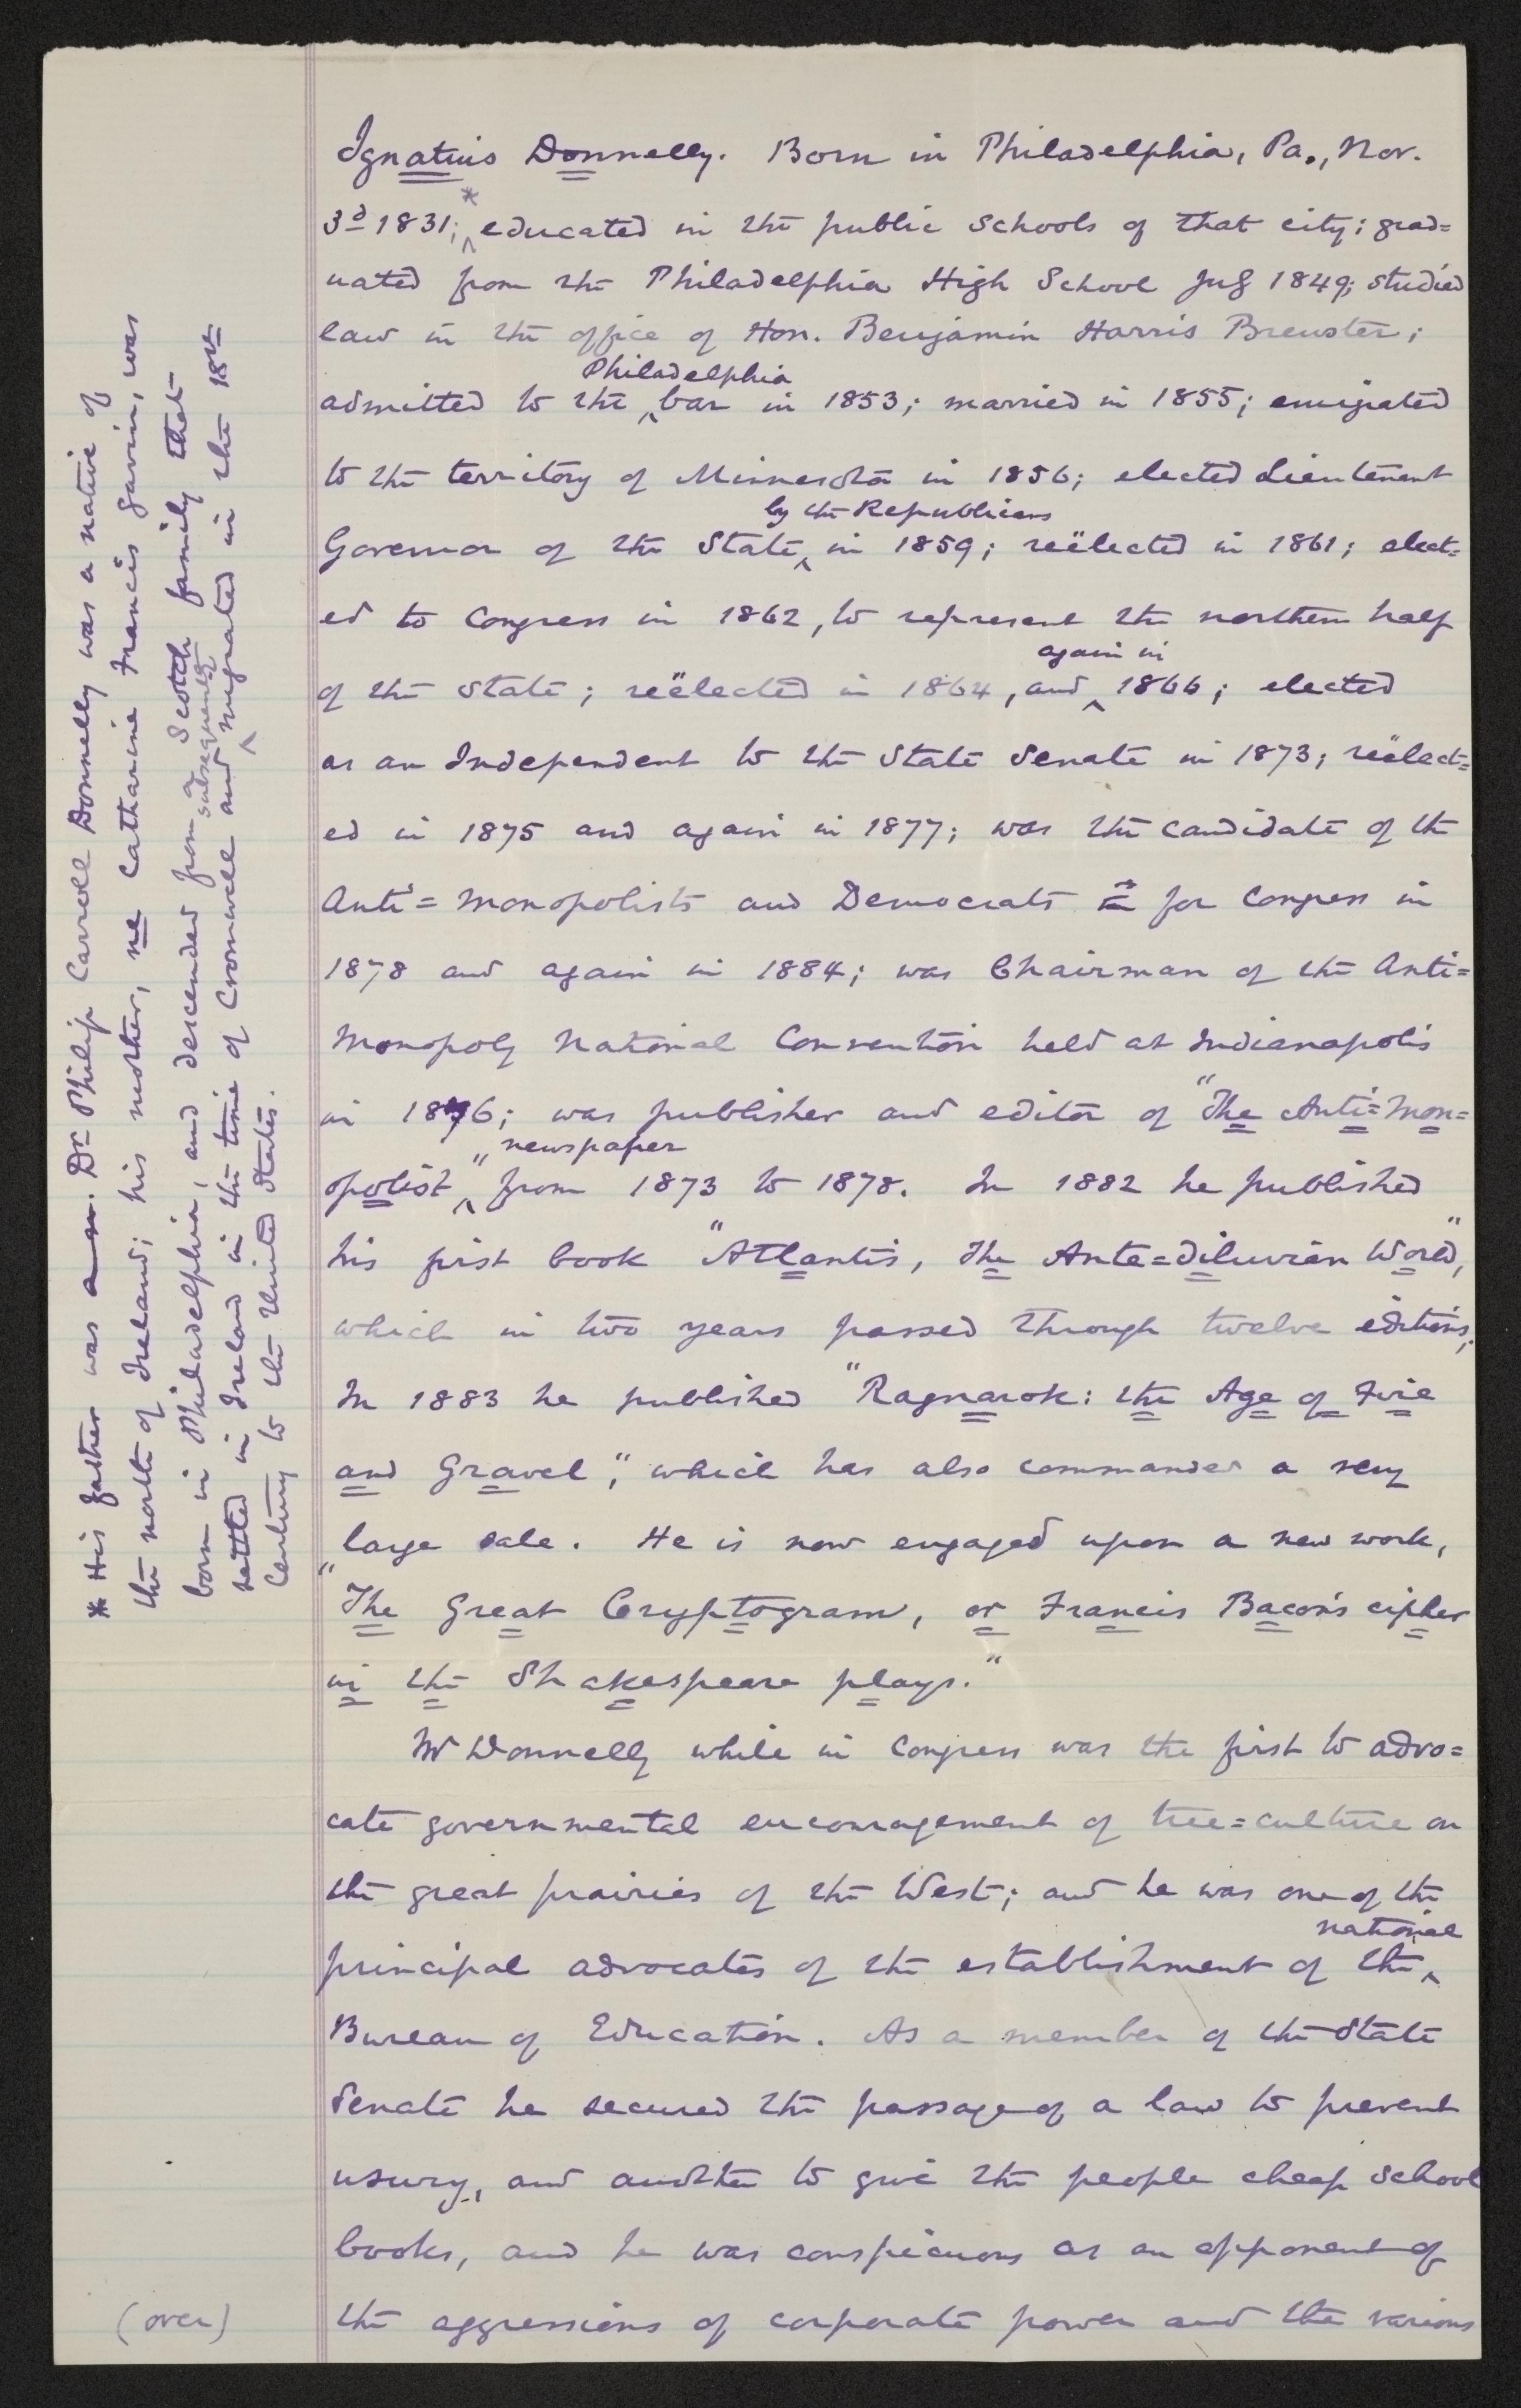 Ignatius Donnelly. Born in Philadelphia, Pa., Nov.
*
3d 1831; educated in the public schools of that city; grad=
uated from the Philadelphia High School July 1849; studied
law in the office of Hon. Benjamin Harris Brewster;
Philadelphia
admitted to the ^ bar in 1853; married in 1855; emigrated
to the territory of Minnesota in 1856; elected Lieutenant
by the Republicans
Governor of the State ^ in 1859; reëlected in 1861; elect=
ed to Congress in 1862, to represent the northern half
again in
of the State; reëlected in 1864, and ^ 1866; elected
as an Independent to the State Senate in 1873; reëlect=
ed in 1875 and again in 1877; was the candidate of the
Anti=Monopolists and Democrats for Congress in
1878 and again in 1884; was Chairman of the Anti=
Monopoly National Convention held at Indianapolis
in 1876; was publisher and editor of "The Anti=Mon=
newspaper
opolist" ^ from 1873 to 1878. In 1882 he published
his first book "Atlantis, The Ante=diluvian World",
which in two years passed through twelve editions;
In 1883 he published "Ragnarok: the Age of Fire
and Gravel", which has also commanded a very
large sale. He is now engaged upon a new work,
"The Great Cryptogram, or Francis Bacon's cipher
in the Shakespeare plays."
Mr Donnelly while in Congress was the first to advo=
cate governmental encouragement of tree=culture on
the great prairies of the West; and he was one of the
national
principal advocates of the establishment of the ^
Bureau of Education. As a member of the State
Senate he secured the passage of a law to prevent
usury, and another to give the people cheap school
books, and he was conspicuous as an opponent of
the aggressions of corporate power and the various
(over)
* His father was a n. Dr Philip Carroll Donnelly was a native of
the north of Ireland; his mother, ne Catharine Francis Gavin, was
born in Philadelphia, and descended from a Scotch family that
subsequently
settled in Ireland in the time of Cromwell and ^ migrated in the 18th
Century to the United States.